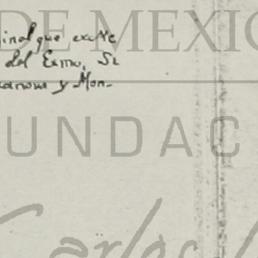 DE MEXIC
inal que existe
del Exmo. Sr
y Mon-
UNDAC
Carlos